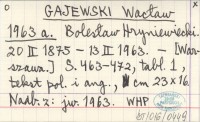 GAJEWSKI Wacław
1963 a. Bolesław Hryniewiecki.
20 II 1875 - 13 II 1963. - [War-
szawa.] S. 463-472, tabl. 1,
tekst pol. i ang., cm 23 x 16
Nadb. z: jw. 1963. WHP